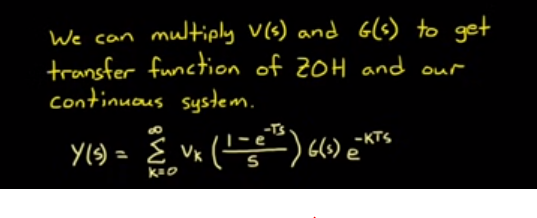 We can multiply V(s) and G(s) to get
transfer function of ZOH and our
continuous system.
Y(s) = ∞ Σ k=0 Vk (1-e^-Ts / s) G(s) e^-KTs